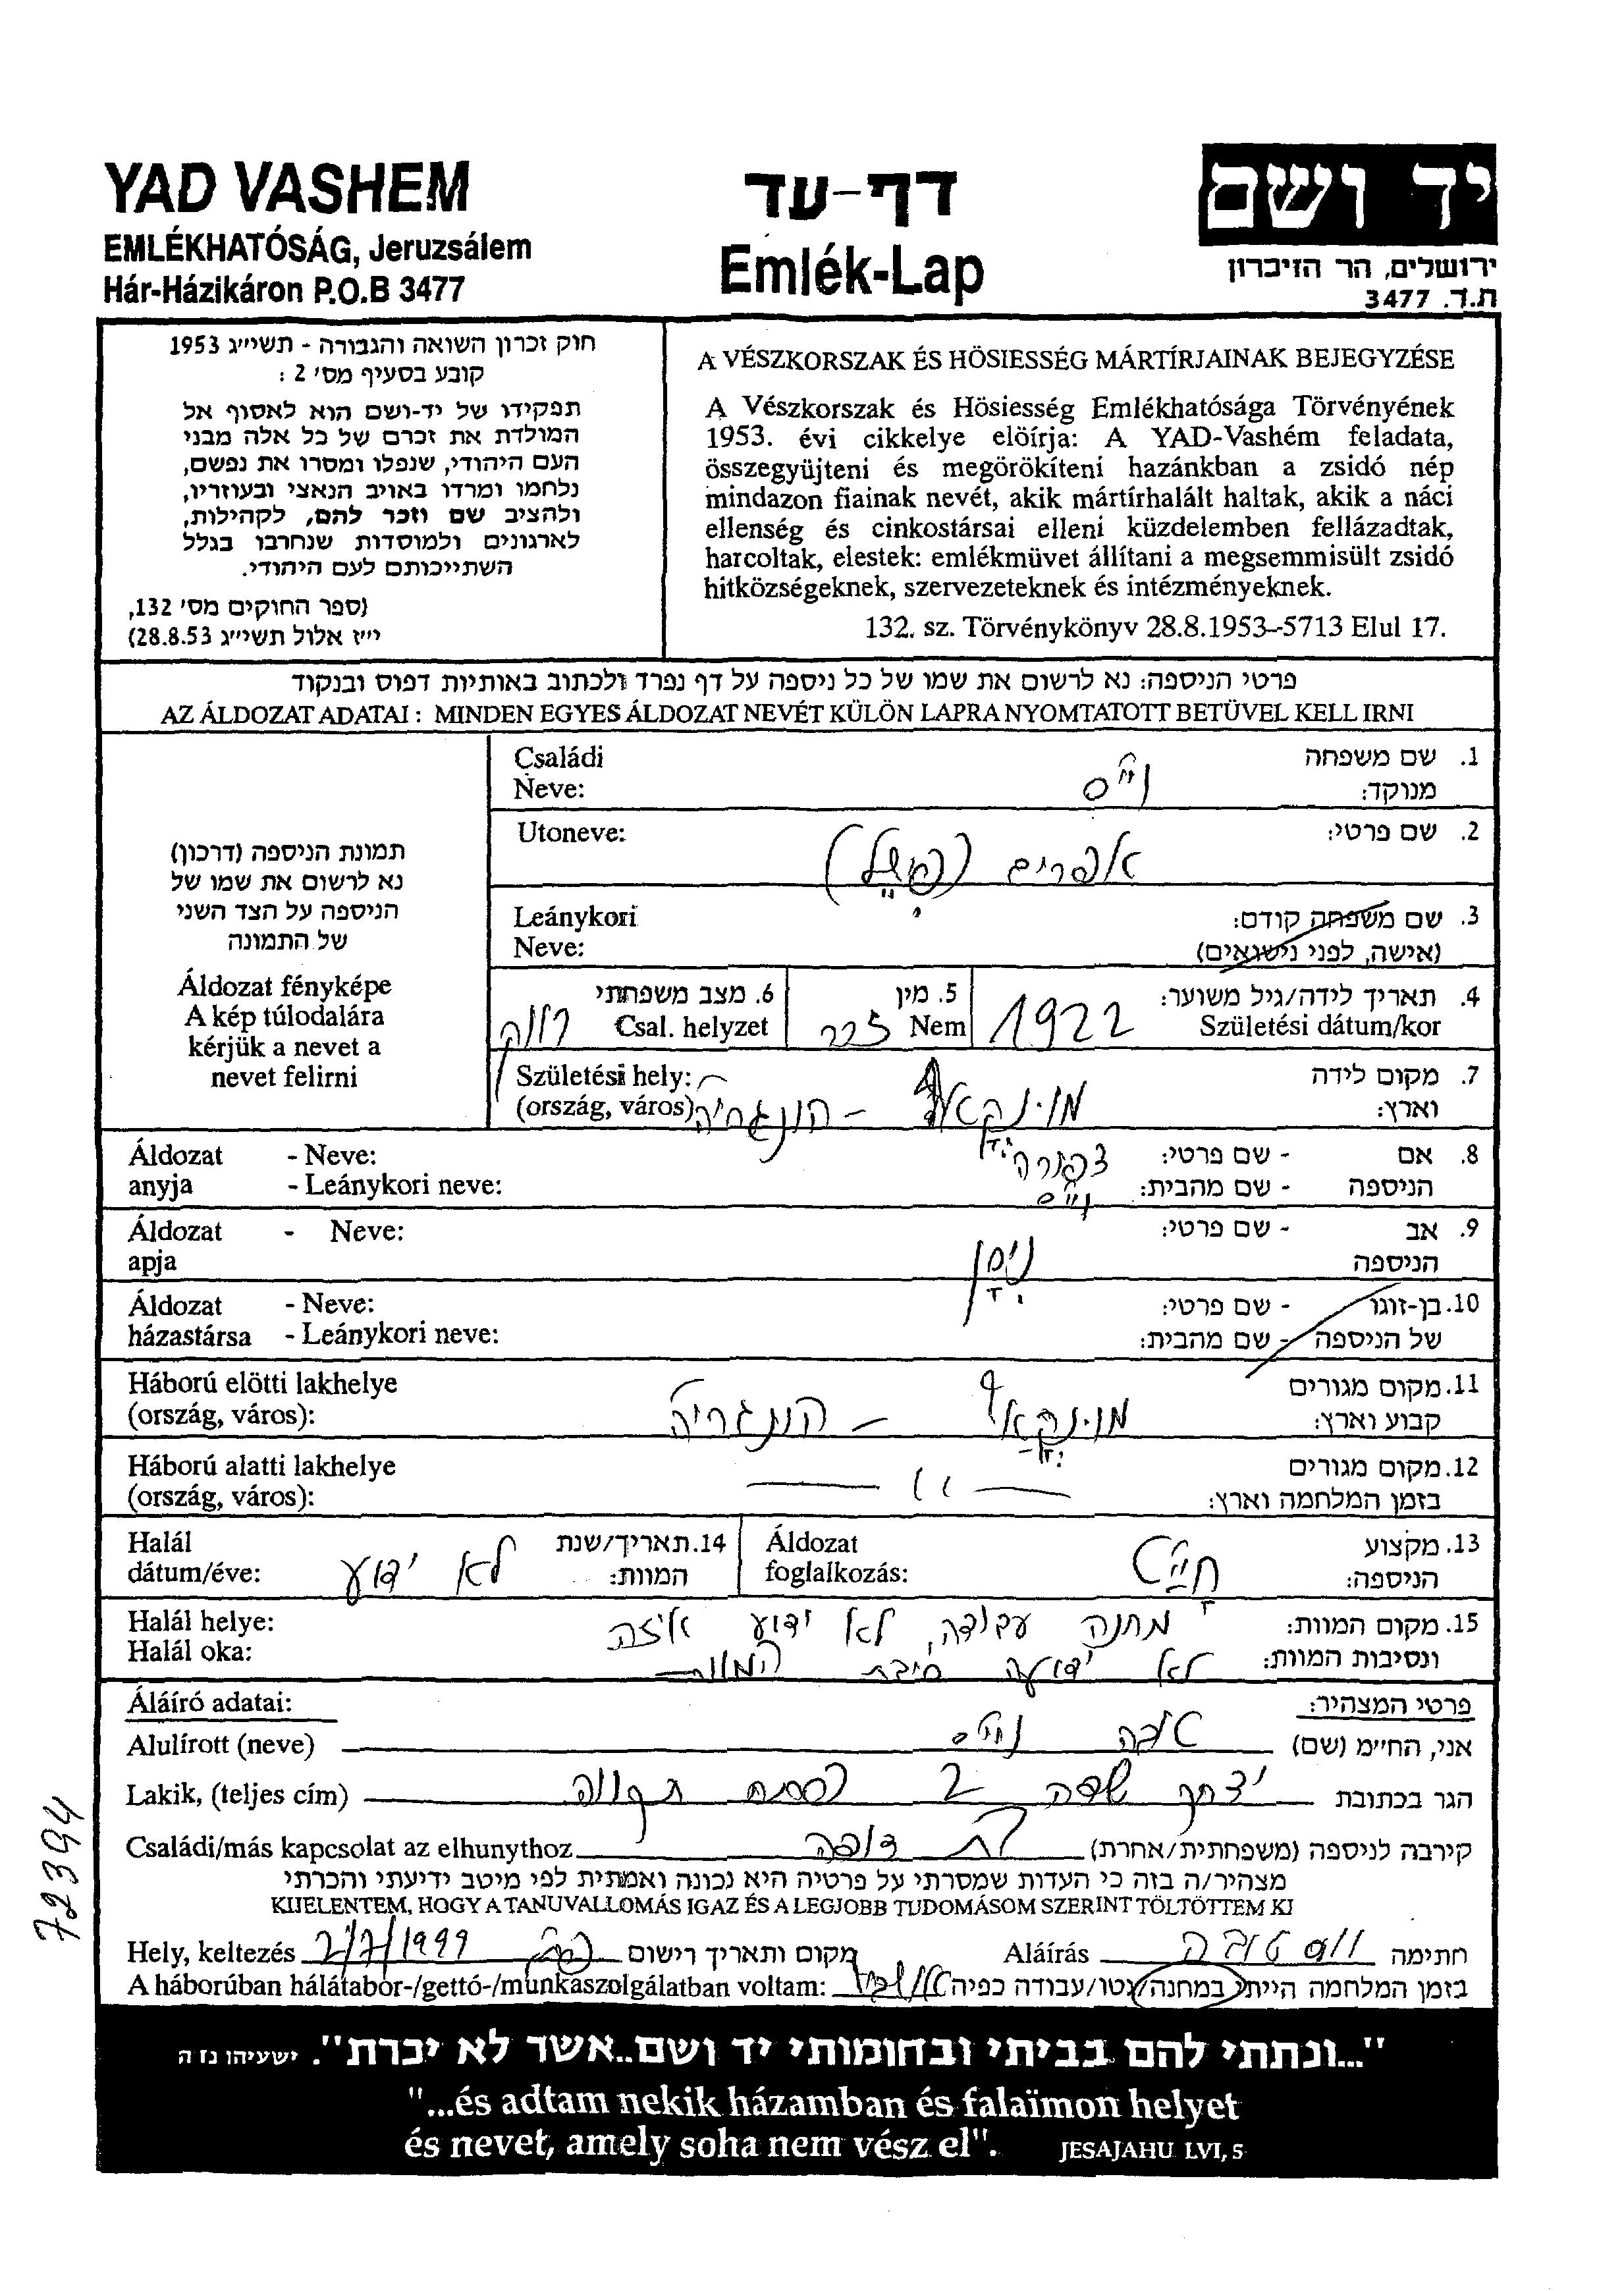 YAD VASHEM
EMLÉKHATÓSÁG, Jeruzsálem
Hár-Házikáron P.O.B 3477
דף-עד
Emlék-Lap
יד ושם
ירושלים, הר הזיכרון
ת.ד. 3477
חוק זכרון השואה והגבורה - תשי״ג 1953
קובע בסעיף מס׳ 2 :
תפקידו של יד-ושם הוא לאסוף אל
המולדת את זכרם של כל אלה מבני
העם היהודי, שנפלו ומסרו את נפשם,
נלחמו ומרדו באויב הנאצי ובעוזריו,
ולהציב שם וזכר להם, לקהילות,
לארגונים ולמוסדות שנחרבו בגלל
השתייכותם לעם היהודי.
(ספר החוקים מס׳ 132,
י״ז אלול תשי״ג 28.8.53)
A VÉSZKORSZAK ÉS HÖSIESSÉG MÁRTÍRJAINAK BEJEGYZÉSE
A Vészkorszak és Hösiesség Emlékhatósága Törvényének
1953. évi cikkelye elöírja: A YAD-Vashém feladata,
összegyüjteni és megörökíteni hazánkban a zsidó nép
mindazon fiainak nevét, akik mártírhalált haltak, akik a náci
ellenség és cinkostársai elleni küzdelemben fellázadtak,
harcoltak, elestek: emlékmüvet állítani a megsemmisült zsidó
hitközségeknek, szervezeteknek és intézményeknek.
132. sz. Törvénykönyv 28.8.1953--5713 Elul 17.
פרטי הניספה: נא לרשום את שמו של כל ניספה על דף נפרד ולכתוב באותיות דפוס ובנקוד
AZ ÁLDOZAT ADATAI : MINDEN EGYES ÁLDOZAT NEVÉT KÜLÖN LAPRA NYOMTATOTT BETÜVEL KELL IRNI
תמונת הניספה (דרכון)
נא לרשום את שמו של
הניספה על הצד השני
של התמונה
Áldozat fényképe
A kép túlodalára
kérjük a nevet a
nevet felirni
1. שם משפחה
מנוקד:
וייס
Családi
Neve:
2. שם פרטי:
אפרים
Utoneve:
3. שם משפחה קודם:
(אישה, לפני נישואים)
Leánykori
Neve:
4. תאריך לידה/גיל משוער:
Születési dátum/kor
1922
5. מין
Nem
זכר
6. מצב משפחתי
Csal. helyzet
רווק
7. מקום לידה
וארץ:
מונקאץ - הונגריה
Születési hely:
(ország, város)
8. אם - שם פרטי:
הניספה - שם מהבית:
צפורה
וייס
Áldozat - Neve:
anyja - Leánykori neve:
9. אב - שם פרטי:
הניספה
ניסן
Áldozat - Neve:
apja
10. בן-זוגו - שם פרטי:
של הניספה - שם מהבית:
Áldozat - Neve:
házastársa - Leánykori neve:
11. מקום מגורים
קבוע וארץ:
מונקאץ - הונגריה
Háború elötti lakhelye
(ország, város):
12. מקום מגורים
בזמן המלחמה וארץ:
— ״ —
Háború alatti lakhelye
(ország, város):
13. מקצוע
הניספה:
חייט
Áldozat
foglalkozás:
14. תאריך/שנת
המוות:
לא ידוע
Halál
dátum/éve:
15. מקום המוות:
ונסיבות המוות:
מחנה עבודה, לא ידוע איזה
לא ידועה סיבת המוות
Halál helye:
Halál oka:
פרטי המצהיר:
Áláíró adatai:
אני, החי״מ (שם) טובה וייס
Alulírott (neve)
הגר בכתובת יצחק שדה 2 פתח תקווה
Lakik, (teljes cím)
קירבה לניספה (משפחתית/אחרת) בת דודה
Családi/más kapcsolat az elhunythoz
מצהיר/ה בזה כי העדות שמסרתי על פרטיה היא נכונה ואמתית לפי מיטב ידיעתי והכרתי
KIJELENTEM, HOGY A TANUVALLOMÁS IGAZ ÉS A LEGJOBB TUDOMÁSOM SZERINT TÖLTÖTTEM KI
חתימה וייס טובה Aláírás
מקום ותאריך רישום 2/7/1999 Hely, keltezés
בזמן המלחמה הייתי במחנה/גטו/עבודה כפיה
A háborúban hálátabor-/gettó-/munkaszolgálatban voltam:
"...ונתתי להם בביתי ובחומותי יד ושם..אשר לא יכרת". ישעיהו נז ה
"...és adtam nekik házamban és falaïmon helyet
és nevet, amely soha nem vész el". JESAJAHU LVI, 5
72394